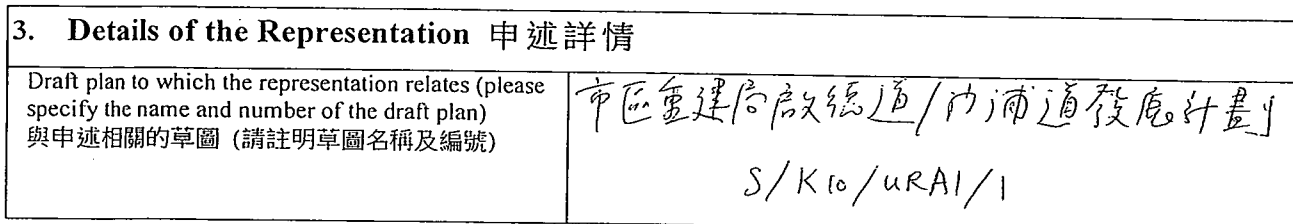 3. Details of the Representation 申述詳情
Draft plan to which the representation relates (please
specify the name and number of the draft plan)
與申述相關的草圖 (請註明草圖名稱及編號)
市區重建局啟德道/沙浦道發展計劃
S/K10/URA1/1